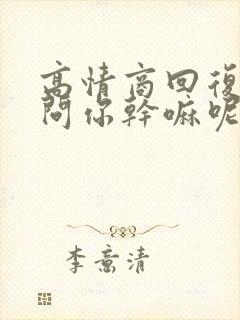 高情商回復
問你幹嘛呢
李意清